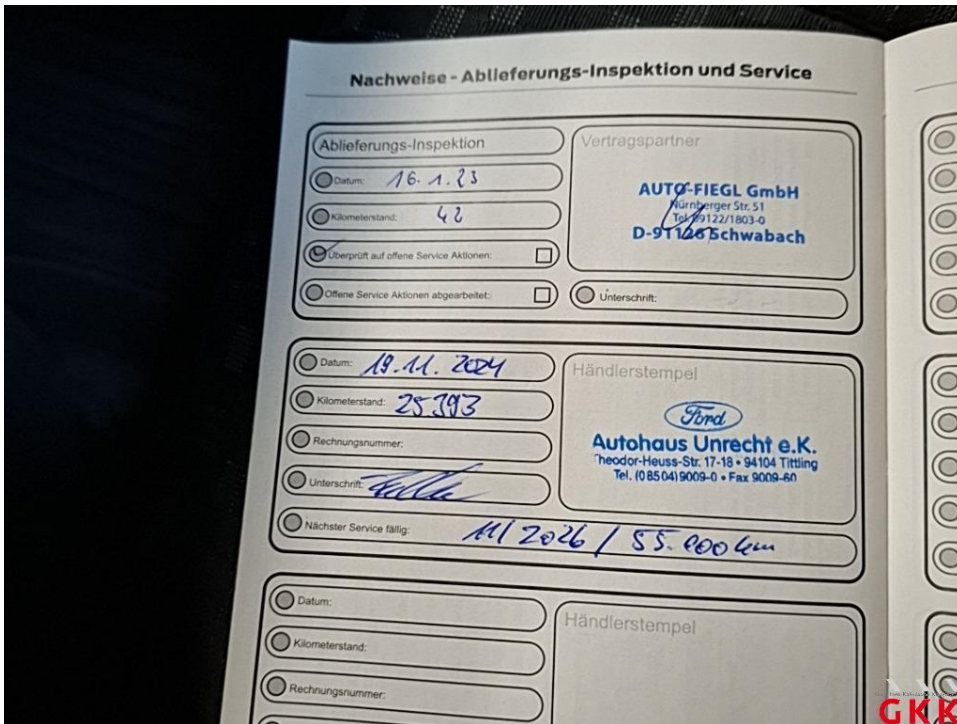 Nachweise - Ablieferungs-Inspektion und Service
Ablieferungs-Inspektion
Datum: 16.1.23
Kilometerstand: 42
Überprüft auf offene Service Aktionen:
Offene Service Aktionen abgearbeitet:
Vertragspartner
AUTO-FIEGL GmbH
Nürnberger Str. 51
Tel. 09122/1803-0
D-91126 Schwabach
Unterschrift:
Datum: 19.11.2024
Kilometerstand: 25393
Rechnungsnummer:
Unterschrift:
Nächster Service fällig: 11/2026 / 55.000 km
Händlerstempel
Ford
Autohaus Unrecht e.K.
Theodor-Heuss-Str. 17-18 • 94104 Tittling
Tel. (08504) 9009-0 • Fax 9009-60
Datum:
Kilometerstand:
Rechnungsnummer:
Händlerstempel
GKK